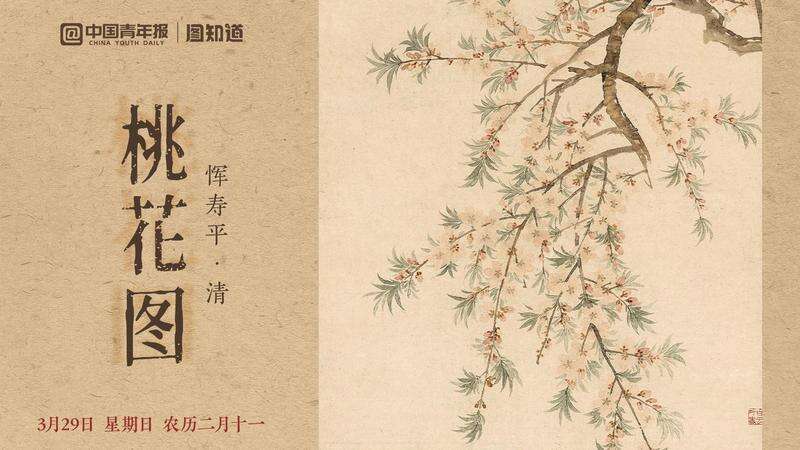 中国青年报
CHINA YOUTH DAILY
图知道
桃花图
恽寿平·清
3月29日 星期日 农历二月十一